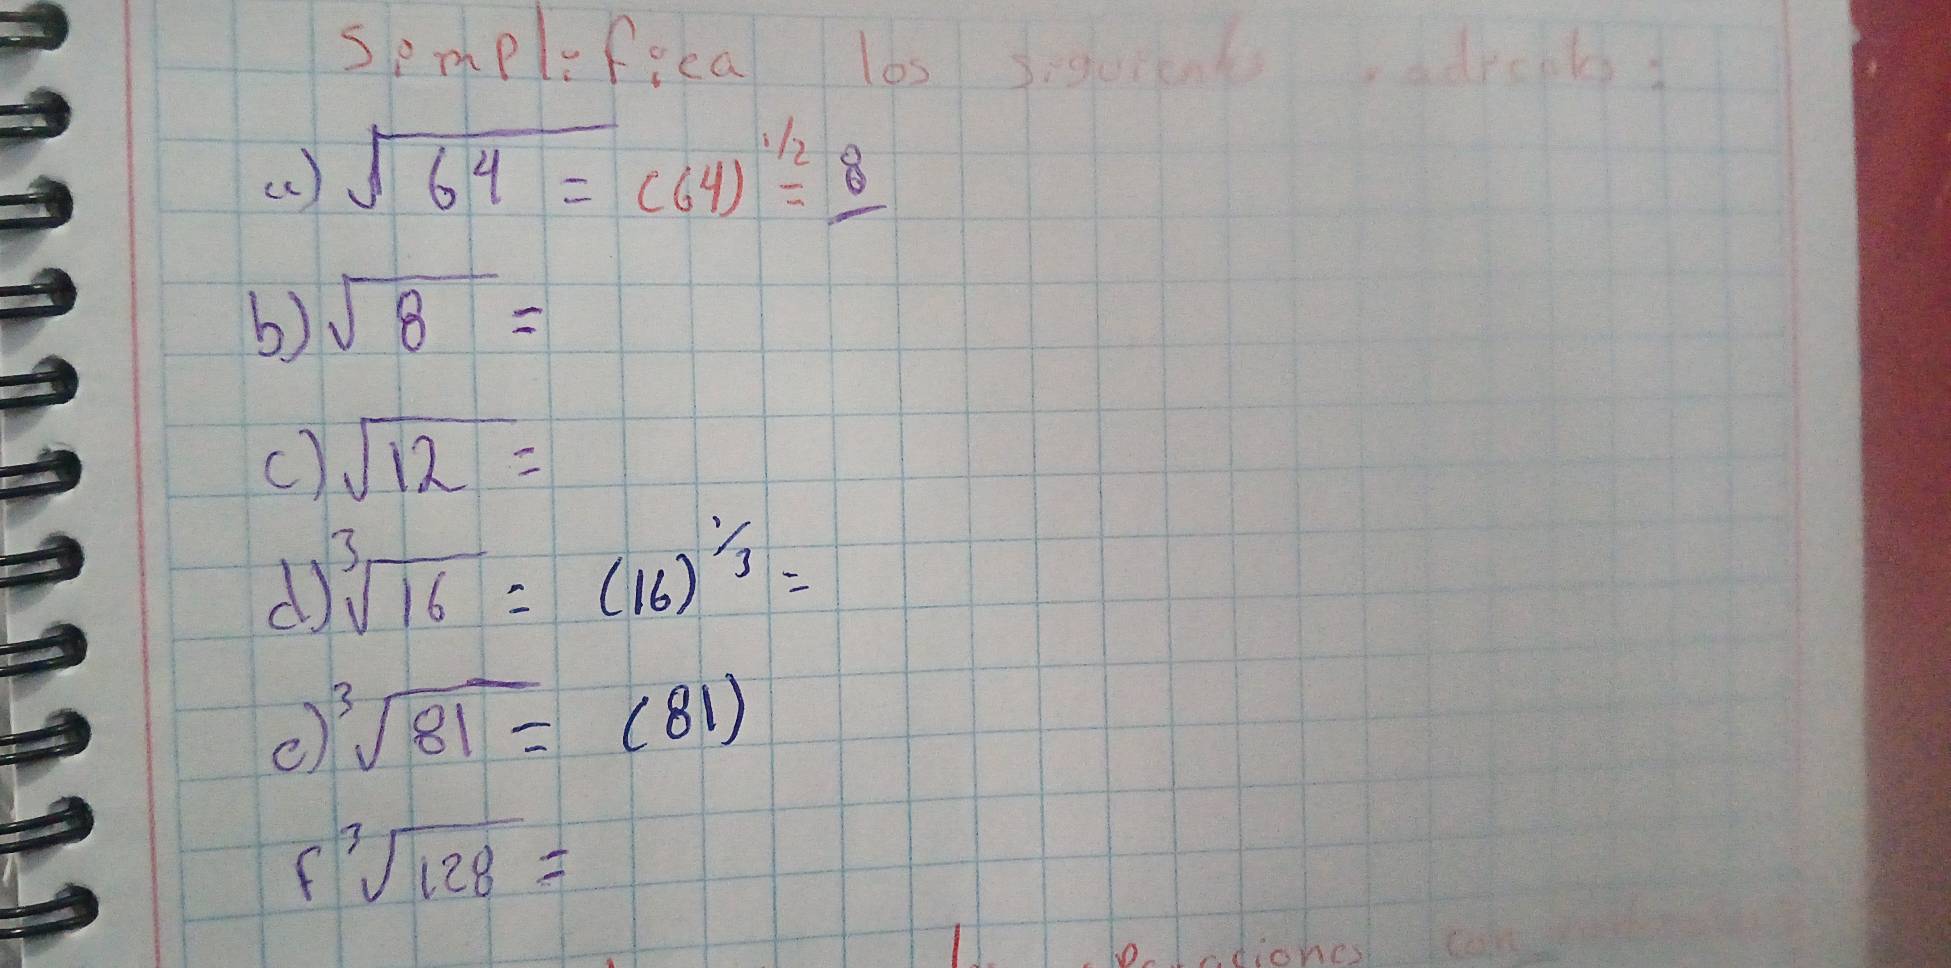 Simplifica los siguientes radicales:
a) √64 = (64)^1/2 = 8
b) √8 =
c) √12 =
d) ³√16 = (16)^1/3 =
e) ³√81 = (81)
f ³√128 =
operaciones con